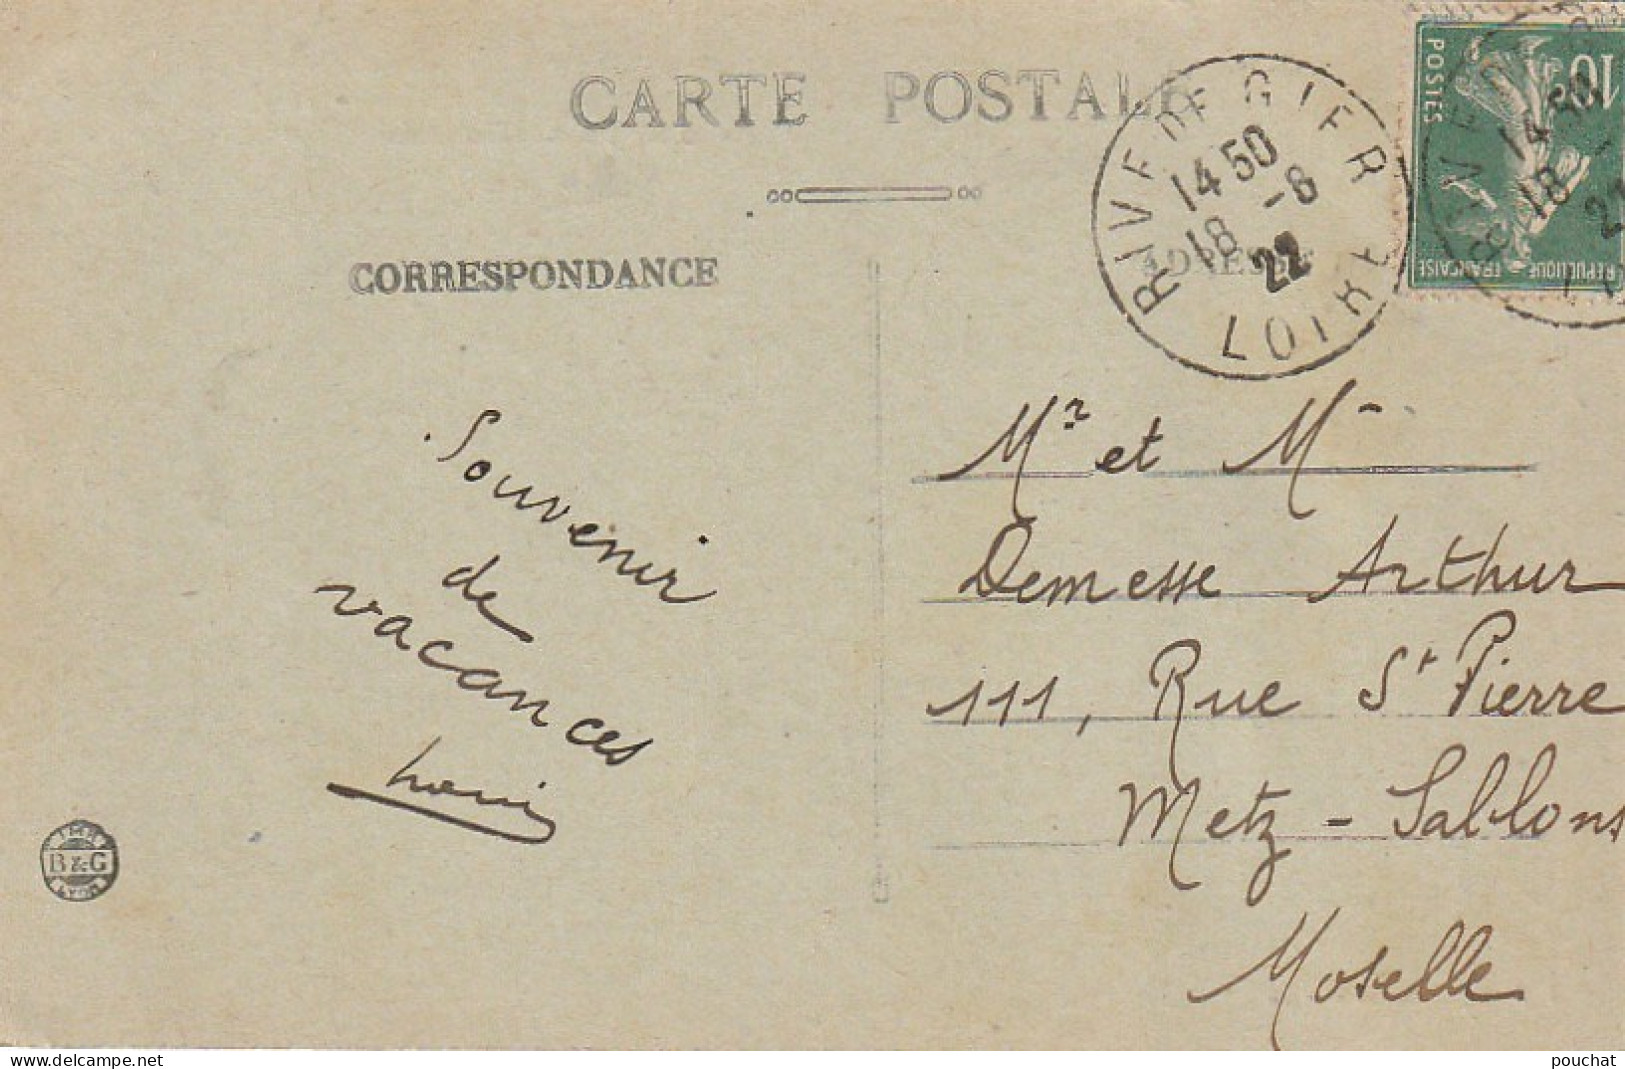 CARTE POSTALE
RIVE DE GIER
14 50
18 -8
22
LOIRE
10
POSTES
REPUBLIQUE FRANÇAISE
14 50
18 -
CORRESPONDANCE
Souvenir
de
vacances
Louis
Mr et M
Demesse Arthur
111, Rue St Pierre
Metz - Sablons
Moselle
IMP.
B & G
delcampe.net
pouchat